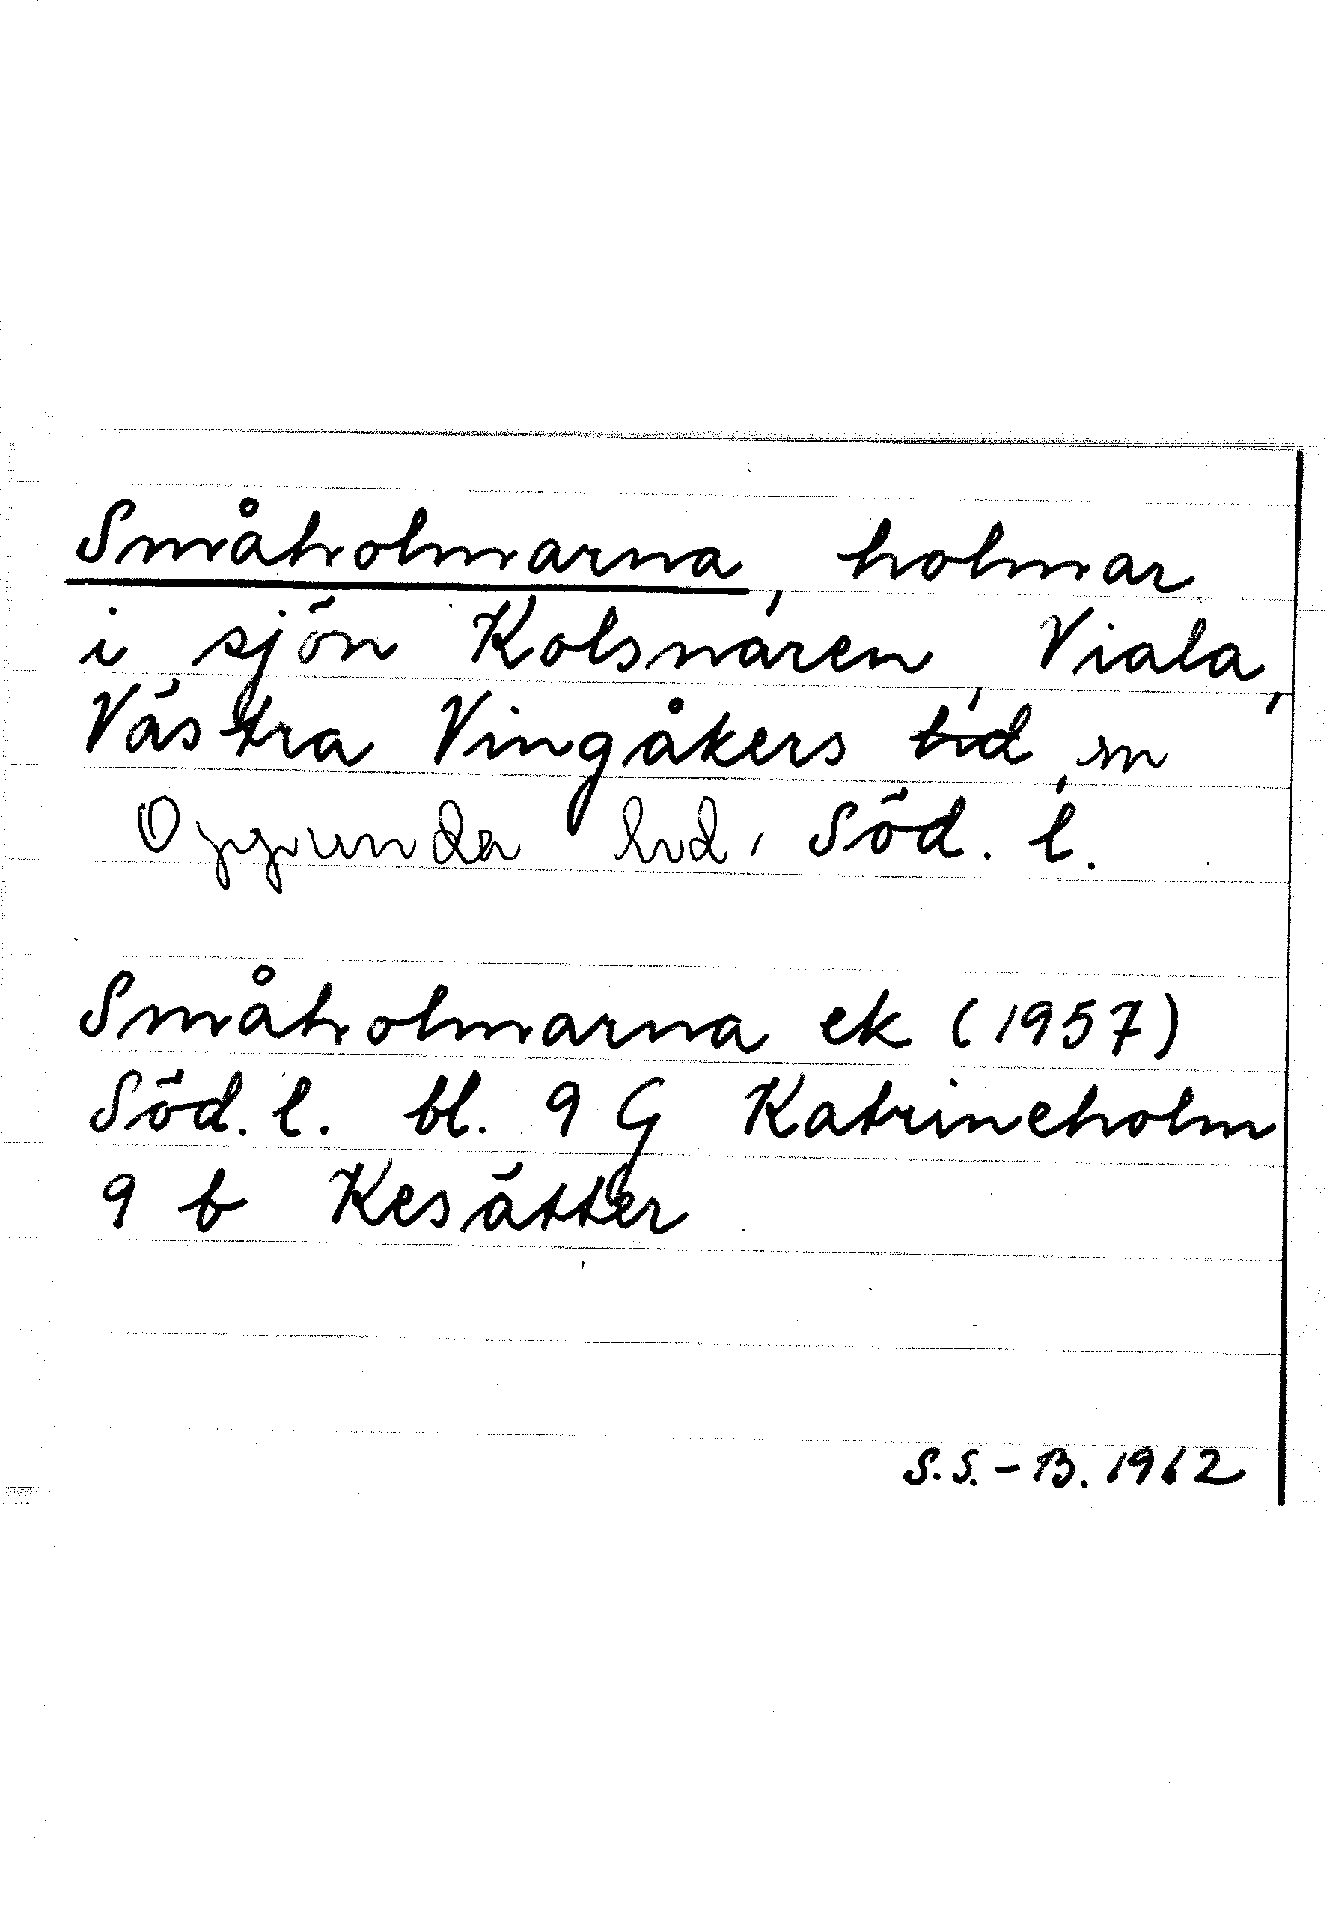 Småholmarna, holmar
i sjön Kolsnaren, Viala,
Västra Vingåkers hd, sn
Oppunda hd, Söd. l.
Småholmarna ek (1957)
Söd. l. bl. 9 G Katrineholm
9 b Kesätter
S.S.-B. 1962